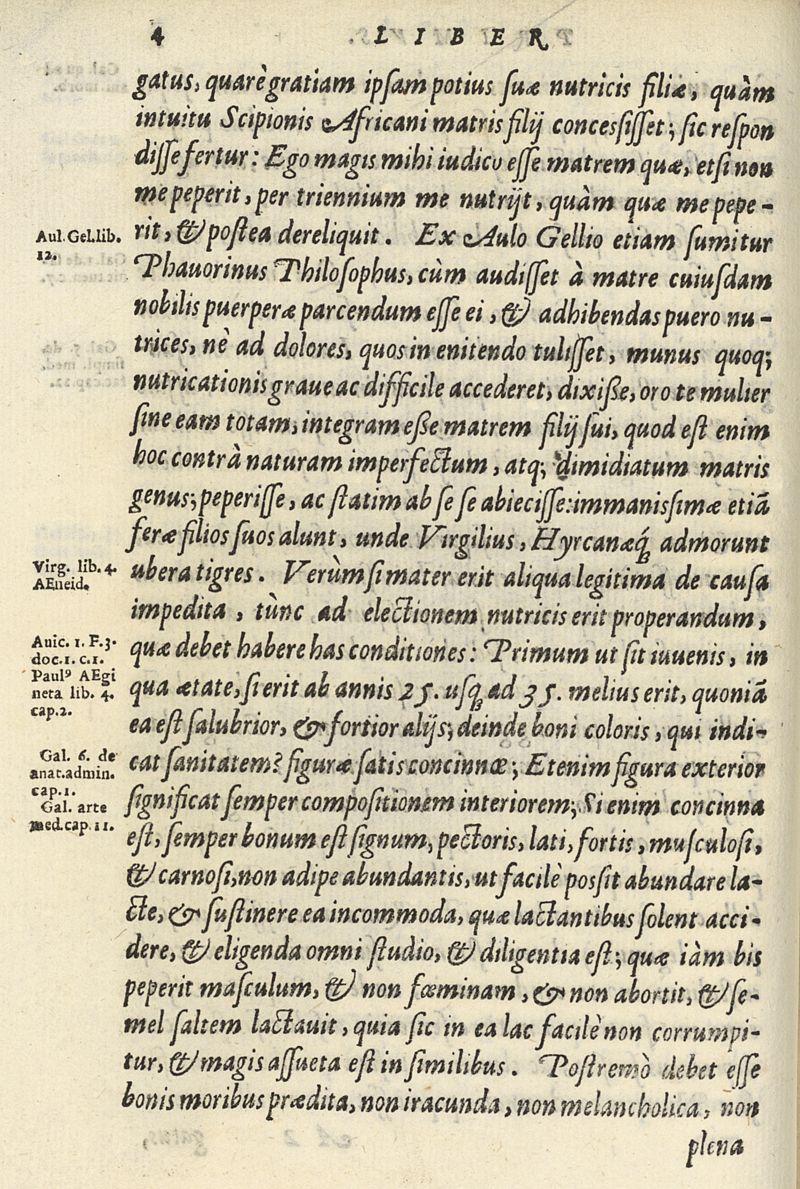 4 LIBER
gatus, quarè gratiam ipsam potius suæ nutricis filiæ, quàm
intuitu Scipionis Africani matris filij concessisset; sic respon
disse fertur: Ego magis mihi iudico esse matrem quæ, etsi non
me peperit, per triennium me nutrijt, quàm quæ me pepe-
rit, & postea dereliquit. Ex Aulo Gellio etiam sumitur
Phauorinus Philosophus, cùm audisset à matre cuiusdam
nobilis puerperæ parcendum esse ei, & adhibendas puero nu-
trices, nè ad dolores, quos in enitendo tulisset, munus quoq;
nutricationis graue ac difficile accederet, dixiße, oro te mulier
sine eam totam, integram eße matrem filij sui, quod est enim
hoc contrà naturam imperfectum, atq; dimidiatum matris
genus; peperisse, ac statim ab se se abiecisse: immanissimæ etiā
feræ filios suos alunt, unde Virgilius, Hyrcanæq́ admorunt
ubera tigres. Verùm si mater erit aliqua legitima de causa
impedita, tùnc ad electionem nutricis erit properandum,
quæ debet habere has conditiones: Primum ut sit iuuenis, in
qua ætate, si erit ab annis 25. usq; ad 35. melius erit, quoniā
ea est salubrior, & fortior alijs; deinde boni coloris, qui indi-
cat sanitatem? figuræ satis concinnæ; Etenim figura exterior
significat semper compositionem interiorem; Si enim concinna
est, semper bonum est signum, pectoris, lati, fortis, musculosi,
& carnosi, non adipe abundantis, ut facilè possit abundare la-
cte, & sustinere ea incommoda, quæ lactantibus solent acci-
dere, & eligenda omni studio, & diligentia est; quæ iàm bis
peperit masculum, & non fœminam, & non abortit, & se-
mel saltem lactauit, quia sic in ea lac facilè non corrumpi-
tur, & magis assueta est in similibus. Postremò debet esse
bonis moribus prædita, non iracunda, non melancholica, non
plena
Aul. Gel. lib.
12.
Virg. lib. 4.
AEneid.
Auic. 1. F. 3.
doc. 1. c. 1.
Paulꝰ AEgi
neta lib. 4.
cap. 2.
Gal. 6. de
anat. admin.
cap. 1.
Gal. arte
med. cap. 11.